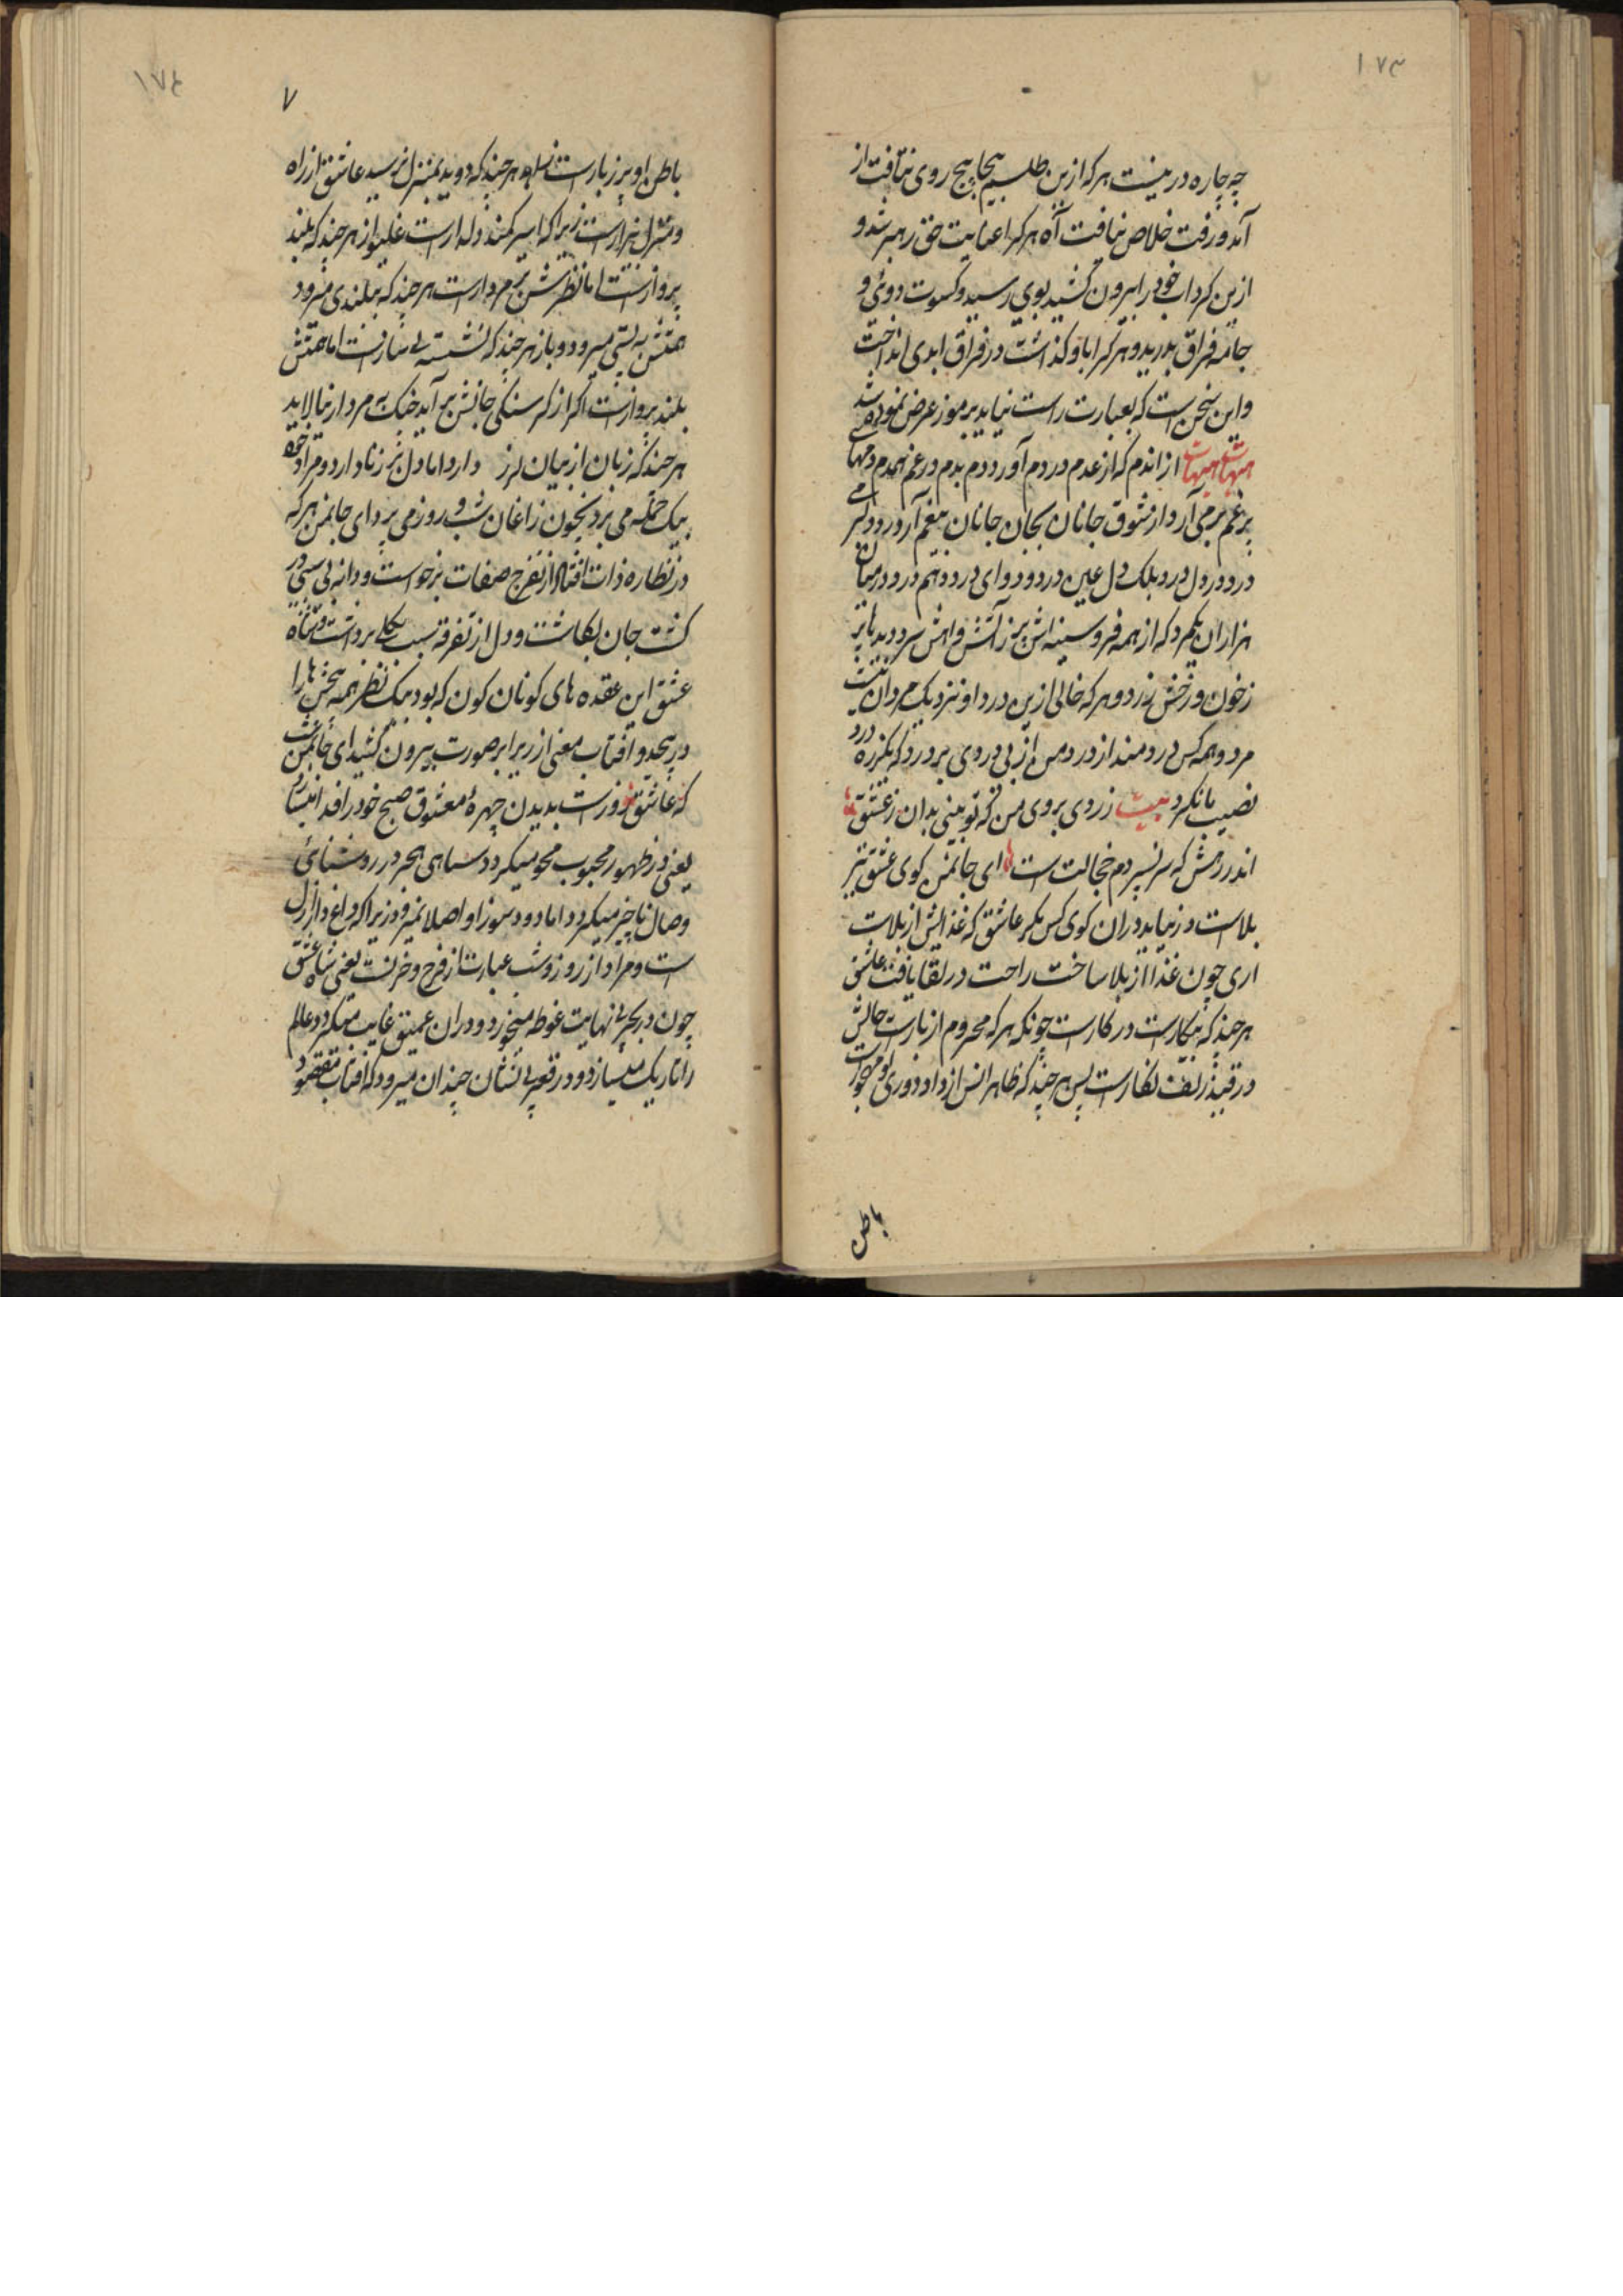 ١٧٣
چه چاره در نیست هرکه ازین طلسم پیچاپیچ روی نتافت از
آمد و رفت خلاص نیافت آه هرکرا عنایت حق رهبر شد و
ازین کرداب خود را بیرون کشید بوی رسید و کسوت دوئی و
جامه فراق بدرید و هرکرا باو کذاشت در فراق ابدی انداخت
و این سخن است که بعبارت راست نیاید برموز عرض نموده شد
هیهات هیهات از اندم که از عدم در دم آورد دم بدم در غم همدم
پر غم بر می آرد از شوق جانان بجان جانان
درد در دل درد بلک دل عین درد و دوای درد هم درد در میان
هزاران یکمرد که از همه فرد سینه اش پر ز آتش و اهش سرد دیدها پر
ز خون و رخش زرد و هرکه خالی ازین درد او نزدیک مردان نیست
مرد و همه کس دردمند از درد من از بی دردی پر درد که یکذره درد
نصیب ما نکرد بیت زردی بروی من که تو بینی بدان ز عشق
اندر رهش که سر نسپردم خجالت است ای جانمن کوی عشق تیر
بلاست و نیاید دران کوی کس مکر عاشق که غذایش از بلاست
اری چون غذا از بلا ساخت راحت در لقا یافت عاشق
هرچند که بیکارست در کارست چونکه هرکه محروم از یارست حالش
در قید زلف نکارست پس هرچند که ظاهرانش از داد دوری
باطن
١٧٤
٧
باطن او پر ز یارست هرچند که دوید بمنزل نرسید عاشق از راه
و منزل بیزارست زیرا که اسیر کمند دلدارست غلیواز هرچند که بلند
پروازست اما نظرش بر مردارست هرچند که ببلندی میرود
همتش به پستی میرود و باز هرچند که نشسته بی نیازست اما همتش
بلند پروازست اکر از کرسنکی جانش بر آید چنک به مردار نیالاید
هرچند که زبان از بیان لرز دارد اما دل
بیک حمله می برد نیچون زاغان شب و روز می پرد ای جانمن هرکه
در نظاره ذات افتاد از تفرج صفات برخواست و دانه بی سبی در
کشت جان بکاشت و دل از تفرقه سبب بکلی برداشت
عشق این عقده های کوناکون که بود بیک نظر همه سخن ها را
در پیچید و افتاب معنی از زیر ابر صورت بیرون کشید ای جانمن
که عاشق بدیدن چهرهٔ معشوق صبح خود را فدا
یعنی در ظهور محبوب محو میکردد سیاهی هجر در روشنائی
وصال ناچیز میکردد اما دود سوز او اصلا نمیرود زیرا که داغ دار ازل
است و مراد از روز و شب عبارت از فرح و خزنست یعنی شاه عشق
چون در بحر بی نهایت غوطه میخورد و دران عمیق غایب میکردد عالم
را تاریک میسازد و در قعر بی نشان چندان میرود که افتاب مقصود